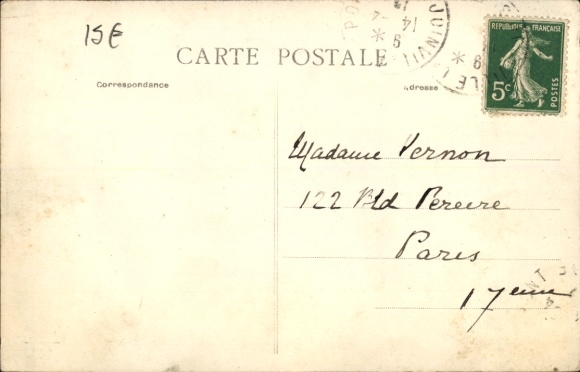 15€
CARTE POSTALE
Correspondance
Adresse
RÉPUBLIQUE FRANÇAISE
5c
POSTES
JOINVILLE
14
Madame Vernon
122 Bld Pereire
Paris
17eme